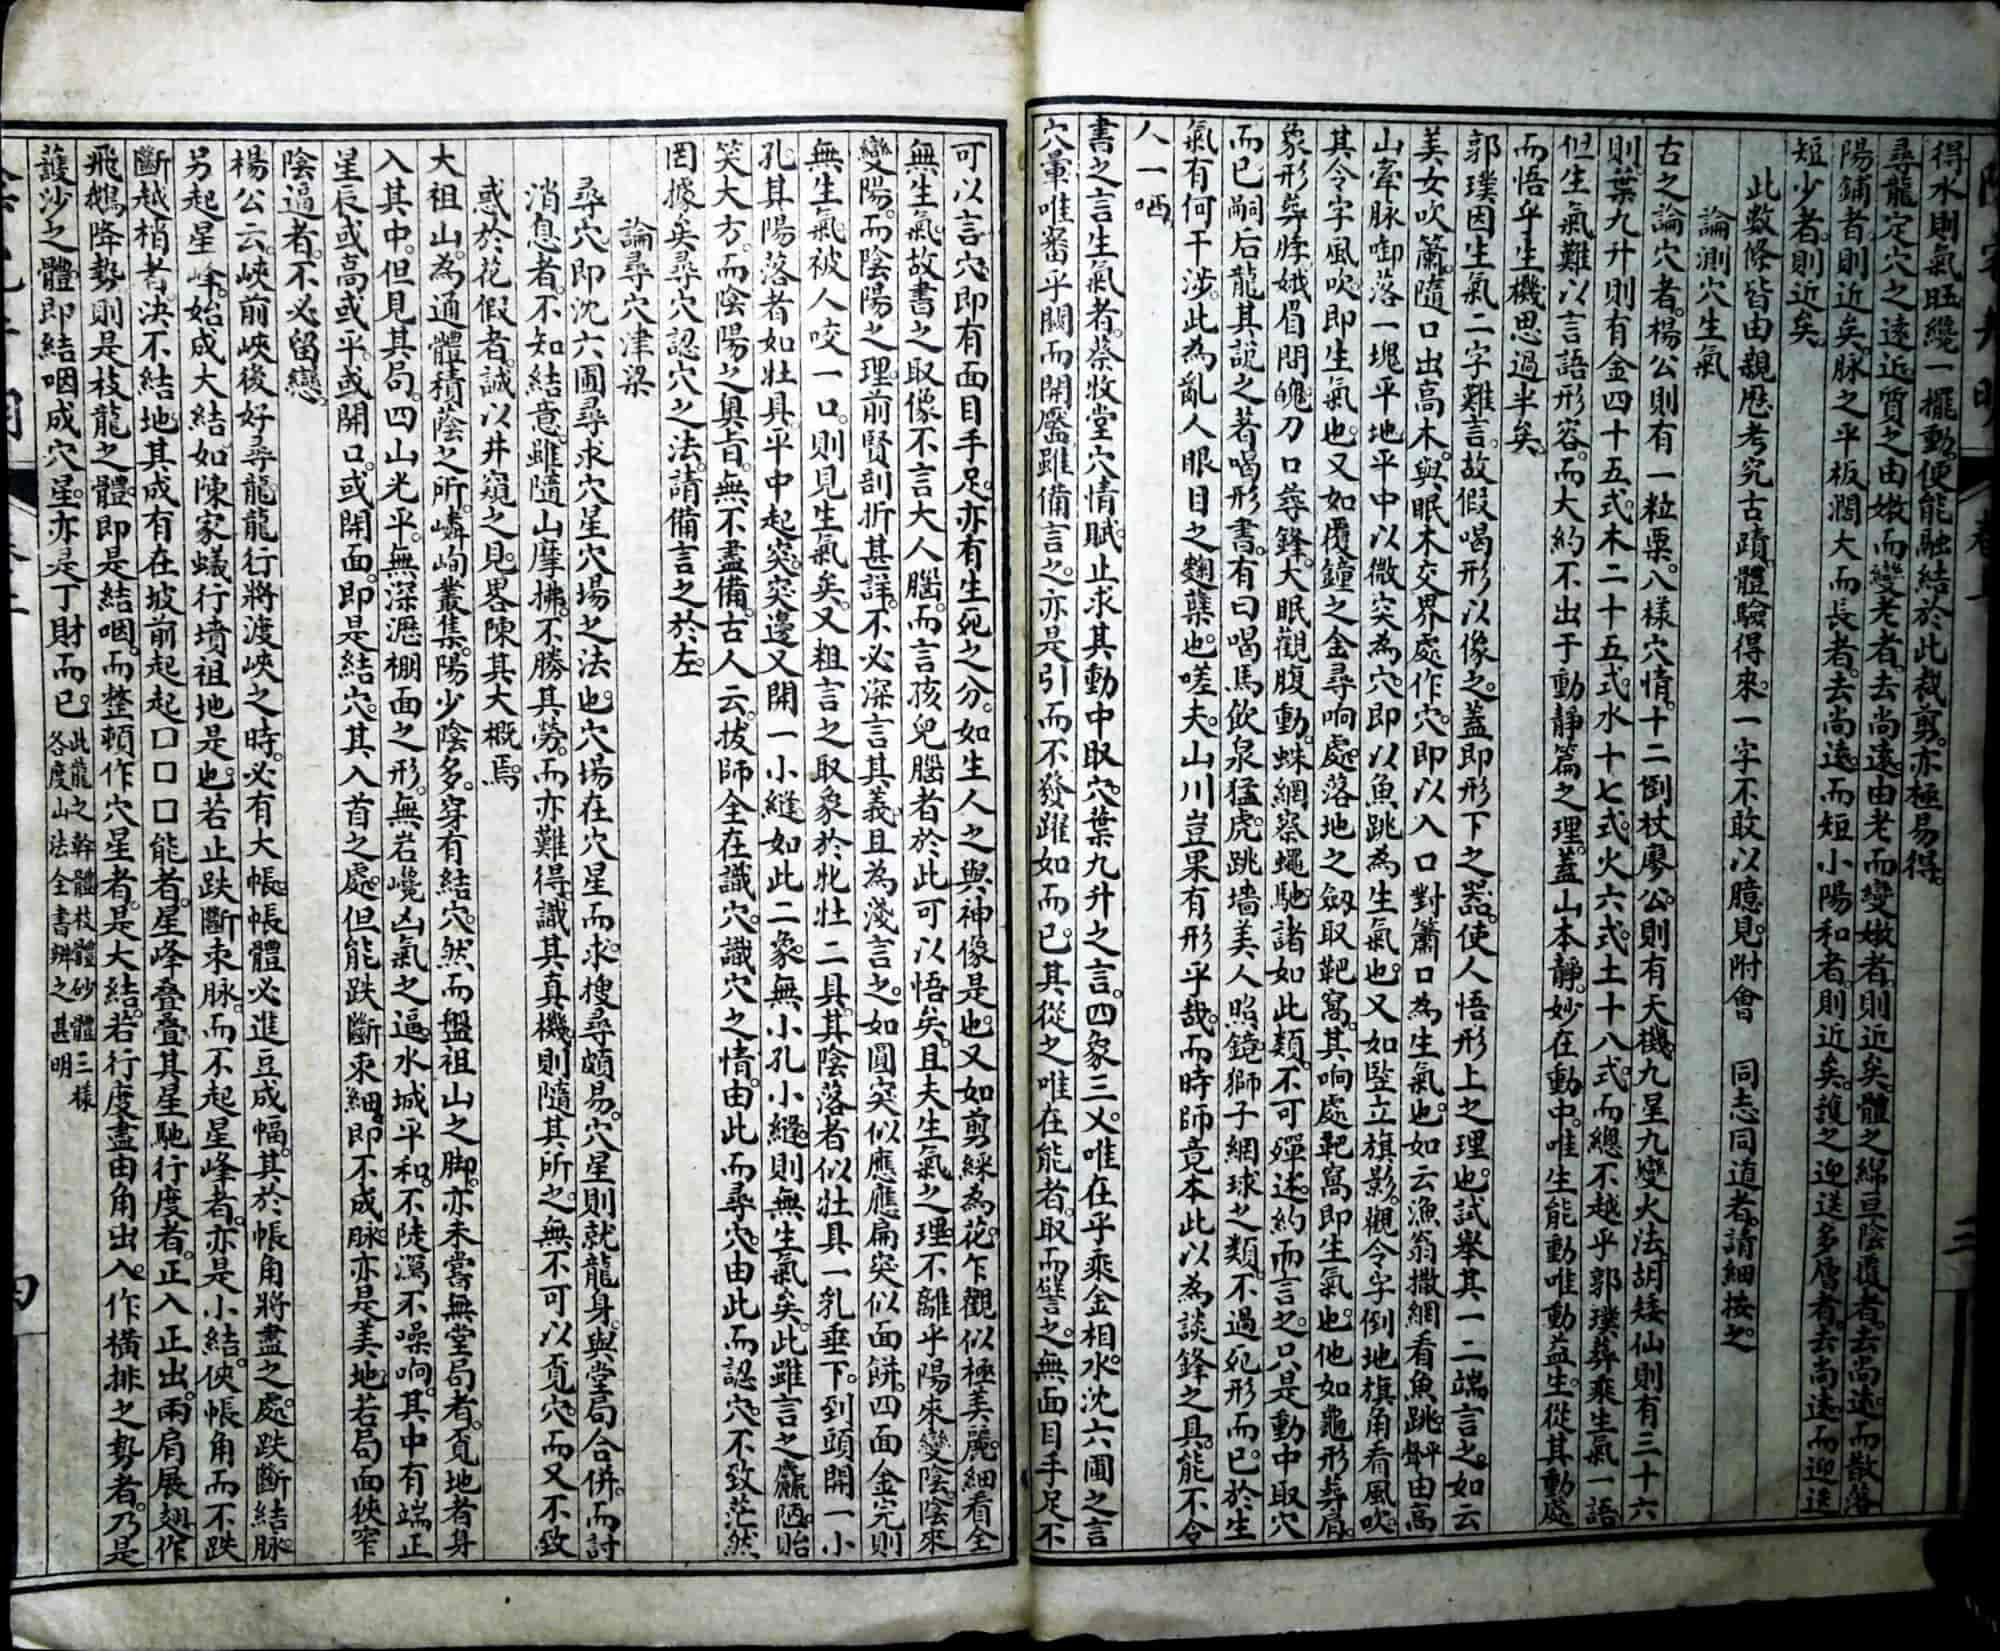 得水則氣旺纔一擺動便能融結於此裁剪亦極易得
尋龍定穴之遠近質之由嫩而變老者去尚遠由老而變嫩者則近矣體之綿亘陰覆者去尚遠而散落
陽鋪者則近矣脉之平板濶大而長者去尚遠而短小陽和者則近矣護之迎送多層者去尚遠而迎送
短少者則近矣
此數條皆由親歷考究古蹟體驗得來一字不敢以臆見附會 同志同道者請細按之
論測穴生氣
古之論穴者楊公則有一粒粟八樣穴情十二倒杖廖公則有天機九星九變火法胡矮仙則有三十六
則葉九升則有金四十五式木二十五式水十七式火六式土十八式而總不越乎郭璞葬乘生氣一語
但生氣難以言語形容而大約不出于動靜篇之理蓋山本靜妙在動中唯生能動唯動益生從其動處
而悟乎生機思過半矣
郭璞因生氣二字難言故假喝形以像之蓋即形下之器使人悟形上之理也試舉其一二端言之如云
美女吹簫隨口出高木與眠木交界處作穴即以入口對簫口為生氣也如云漁翁撒網看魚跳坪由高
山牽脉啣落一塊平地平中以微突為穴即以魚跳為生氣也又如竪立旗影覷令字倒地旗角看風吹
其令字風吹即生氣也又如覆鐘之金尋响處落地之劔取靶窩其响處靶窩即生氣也他如龜形葬肩
象形葬脖娥眉問魄刀口尋鋒犬眠觀腹動蛛網察蠅馳諸如此類不可殫述約而言之只是動中取穴
而已嗣后龍其說之著喝形書有曰喝馬飲泉猛虎跳墻美人照鏡獅子網球之類不過死形而已於生
氣有何干涉此為亂人眼目之麯蘗也嗟夫山川豈果有形乎哉而時師竟本此以為談鋒之具能不令
人一哂
書之言生氣者蔡牧堂穴情賦止求其動中取穴葉九升之言四象三乂唯在乎乘金相水沈六圃之言
穴暈唯審乎闢而開靨雖備言之亦是引而不發躍如而已其從之唯在能者取而譬之無面目手足不
可以言穴即有面目手足亦有生死之分如生人之與神像是也又如剪綵為花乍觀似極美麗細看全
無生氣故書之取像不言大人腦而言孩兒腦者於此可以悟矣且夫生氣之理不離乎陽來變陰陰來
變陽而陰陽之理前賢剖折甚詳不必深言其義且為淺言之如圓突似應應扁突似面餅四面金完則
無生氣被人咬一口則見生氣矣又粗言之取象於牝牡二具其陰落者似牡具一乳垂下到頭開一小
孔其陽落者如牡具平中起突突邊又開一小縫如此二象無小孔小縫則無生氣矣此雖言之麤陋貽
笑大方而陰陽之奧旨無不盡備古人云拔師全在識穴識穴之情由此而尋穴由此而認穴不致茫然
罔據矣尋穴認穴之法請備言之於左
論尋穴津梁
尋穴即沈六圃尋求穴星穴場之法也穴場在穴星而求搜尋頗易穴星則就龍身與堂局合併而討
消息者不知結意雖隨山摩拂不勝其勞而亦難得識其真機則隨其所之無不可以覓穴而又不致
惑於花假者誠以井窺之見畧陳其大概焉
大祖山為通體積蔭之所嶙峋叢集陽少陰多穿有結穴然而盤祖山之脚亦未嘗無堂局者覓地者身
入其中但見其局四山光平無深瀝棚面之形無岩巉凶氣之逼水城平和不陡瀉不噪响其中有端正
星辰或高或平或開口或開面即是結穴其入首之處但能跌斷束細即不成脉亦是美地若局面狹窄
陰逼者不必留戀
楊公云峽前峽後好尋龍龍行將渡峽之時必有大帳帳體必進豆成幅其於帳角將盡之處跌斷結脉
另起星峰始成大結如陳家蟻行墳祖地是也若止跌斷束脉而不起星峰者亦是小結俠帳角而不跌
斷越梢者決不結地其成有在坡前起起口口口能者星峰叠叠其星馳行度者正入正出兩肩展翅作
飛鵝降勢則是枝龍之體即是結咽而整頓作穴星者是大結若行度盡由角出入作橫排之勢者乃是
護沙之體即結咽成穴星亦是丁財而已此龍之幹體枝體砂體三樣各度山法全書辨之甚明